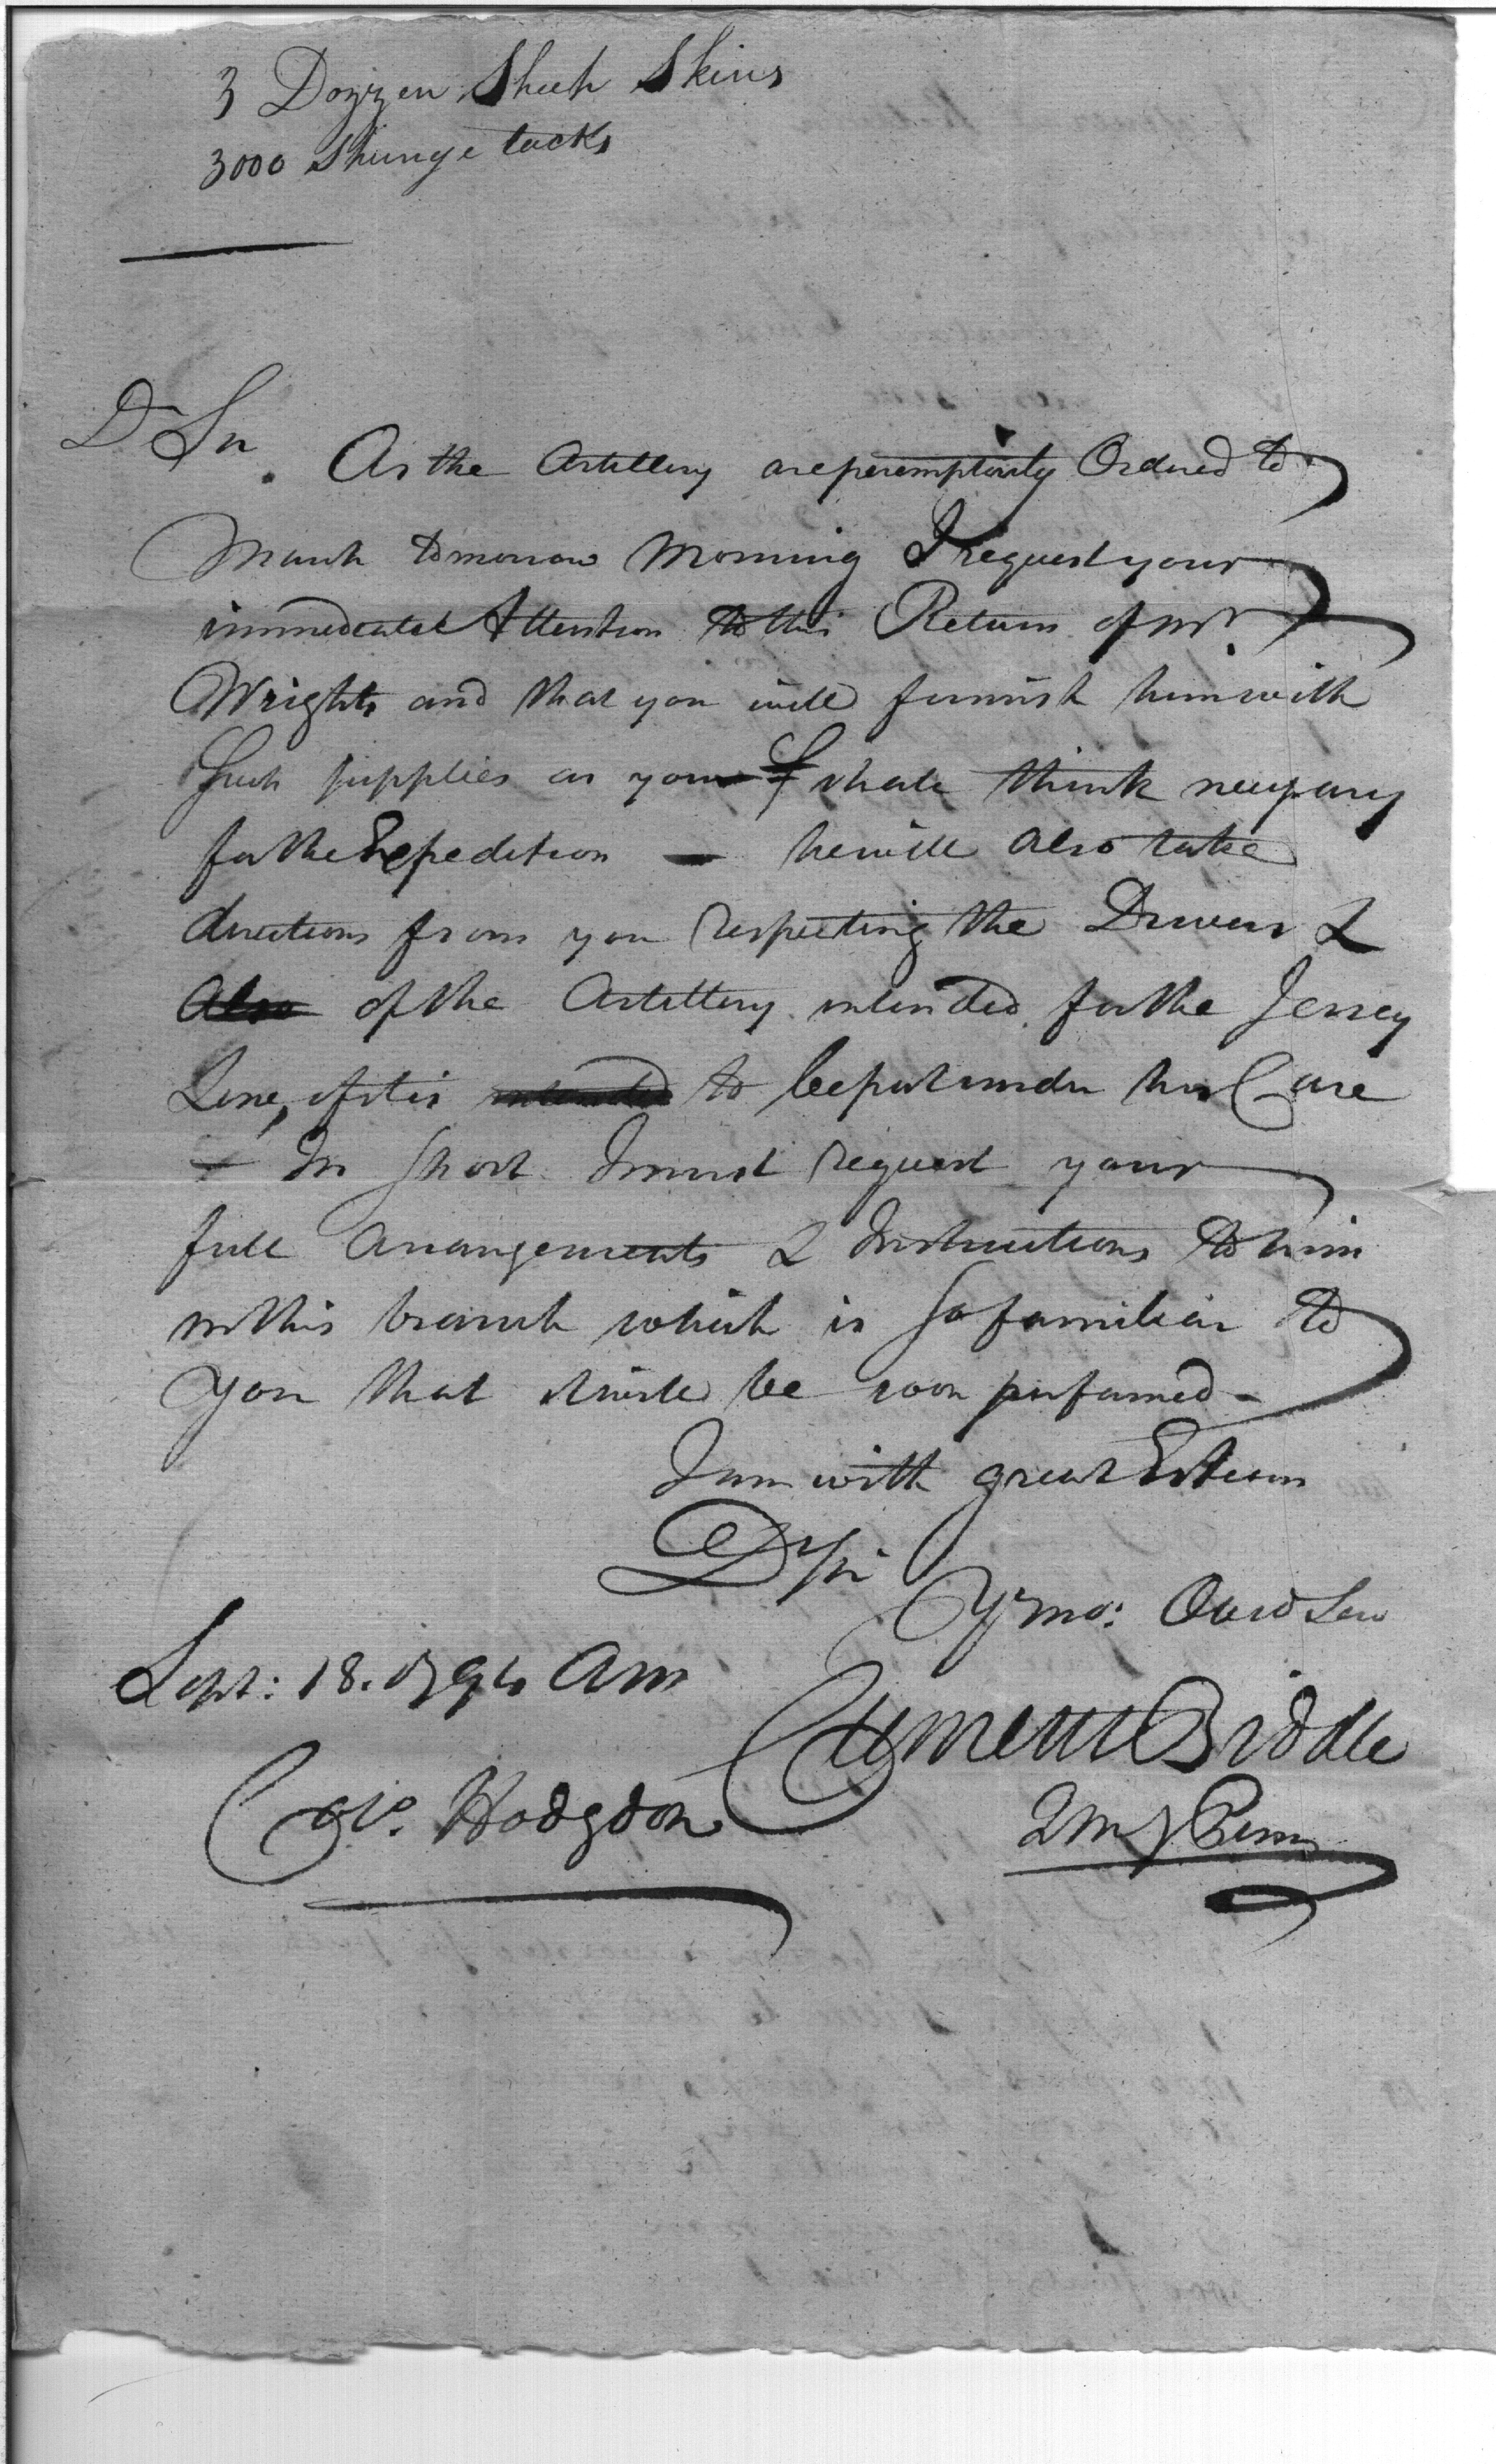 3 Dozzen Sheep Skins
3000 Spunge tacks
D Sir
As the Artillery are peremptorily Ordered to
March tomorrow Morning I request your
immediate Attention to this Return of Mr.
Wrights and that you will furnish him with
Such supplies as you shall think necessary
for the Expedition — he will also take
directions from you respecting the Drivers &
Also of the Artillery intended for the Jersey
Line, if it is intended to be put under his Care
— In short I must request your
full Arrangements & Instructions to him
in this branch which is so familiar to
you that it will be soon performed —
I am with great Esteem
D Sir
Yr mo: Obed Serv
Sept: 18. 1794 Am
Clement Biddle
Colo. Hodgdon
QM G Penns